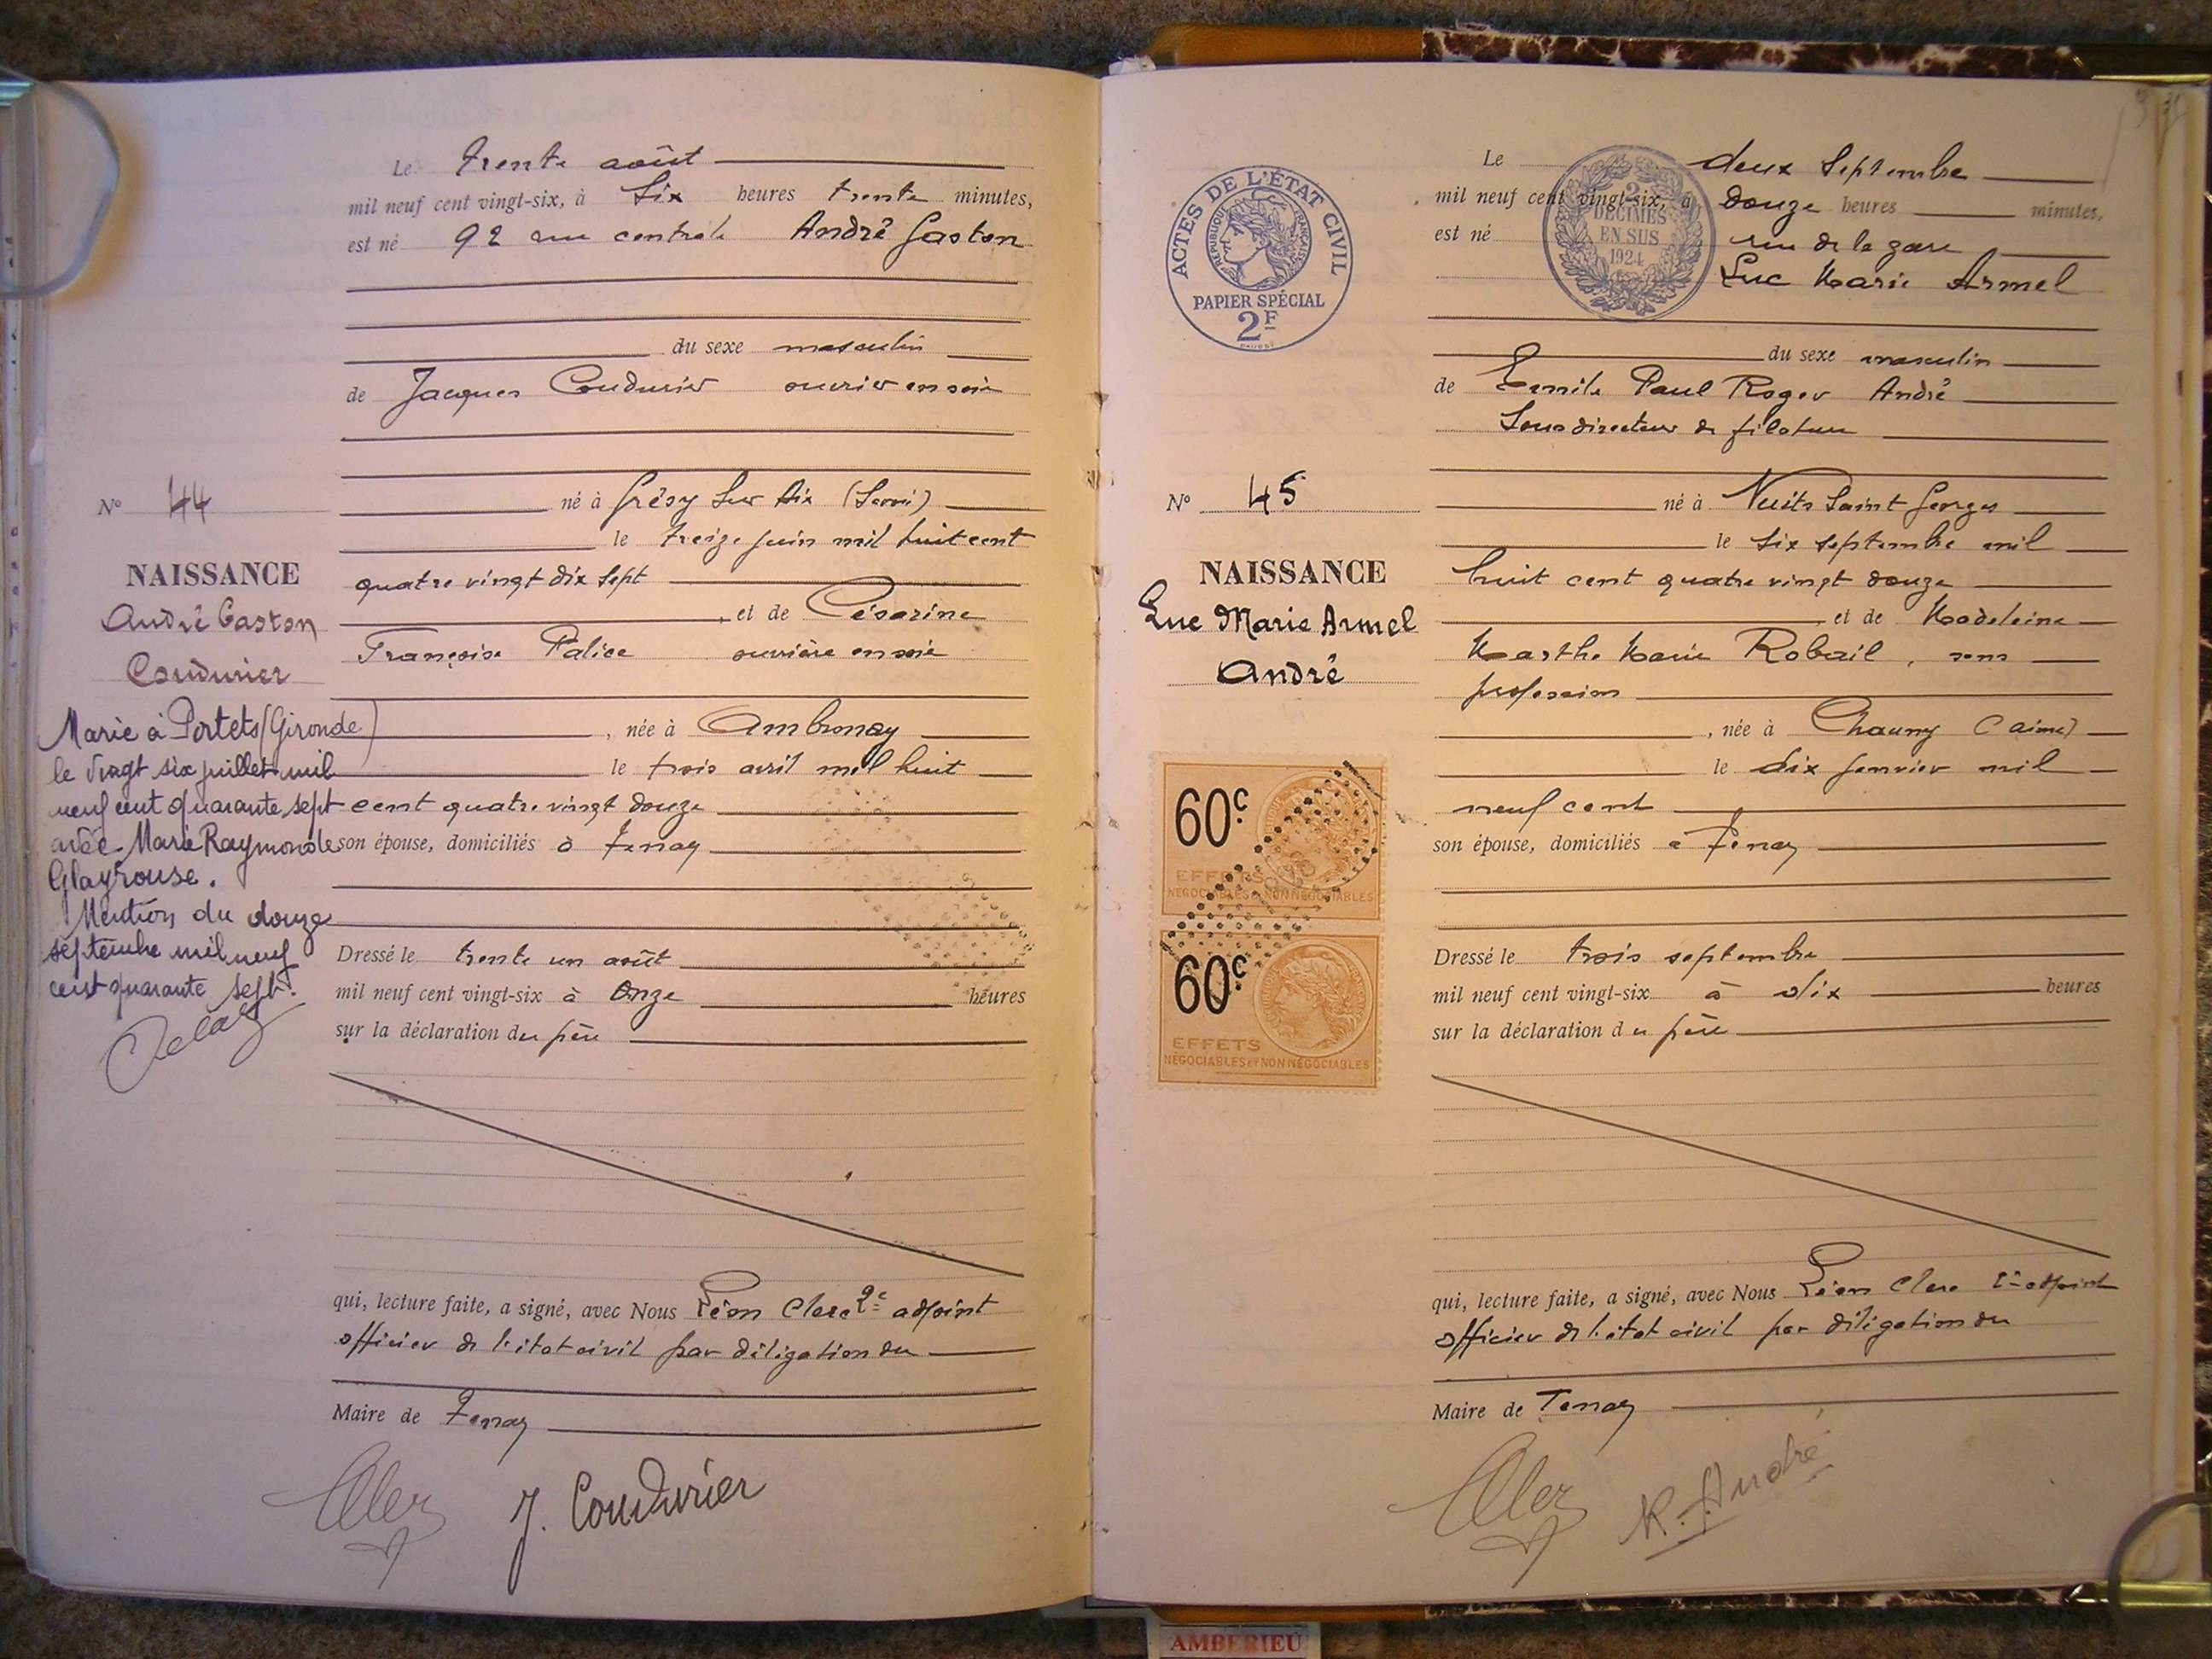 Le trente août
mil neuf cent vingt-six, à Six heures trente minutes,
est né 92 rue centrale André Gaston
du sexe masculin
de Jacques Coudurier ouvrier en soie
né à Grésy Sur Aix (Savoie)
le treize juin mil huit cent
quatre vingt dix sept
et de Césarine
Françoise Palice ouvrière en soie
, née à Ambronay
le trois avril mil huit
cent quatre vingt douze
son épouse, domiciliés à Tenay
Dressé le trente un août
mil neuf cent vingt-six à Onze heures
sur la déclaration du père
qui, lecture faite, a signé, avec Nous Léon Clerc 2e adjoint
officier de l'état civil par déligation du
Maire de Tenay
J. Coudurier
N° 44
NAISSANCE
André Gaston
Coudurier
Marié à Portets (Gironde)
le vingt six juillet mil
neuf cent quarante sept
avec Marie Raymonde
Glayrouse.
Mention du douze
septembre mil neuf
cent quarante sept.
Le deux Septembre
mil neuf cent vingt-six, à douze heures minutes,
est né rue de la gare
Luc Marie Armel
du sexe masculin
de Emile Paul Roger André
Sous directeur de filature
né à Nuits Saint Georges
le six septembre mil
huit cent quatre vingt douze
et de Madeleine
Marthe Marie Robail, sans
profession
, née à Chauny (aisne)
le dix janvier mil
neuf cent
son épouse, domiciliés à Tenay
Dressé le trois septembre
mil neuf cent vingt-six à dix heures
sur la déclaration du père
qui, lecture faite, a signé, avec Nous Léon Clerc 2e adjoint
officier de l'état civil par déligation du
Maire de Tenay
R. André
N° 45
NAISSANCE
Luc Marie Armel
André
ACTES DE L'ÉTAT CIVIL
RÉPUBLIQUE FRANÇAISE
PAPIER SPÉCIAL
2F
2
DÉCIMES
EN SUS
1924
60c
EFFETS
NÉGOCIABLES ET NON NÉGOCIABLES
60c
EFFETS
NÉGOCIABLES ET NON NÉGOCIABLES
AMBERIEU